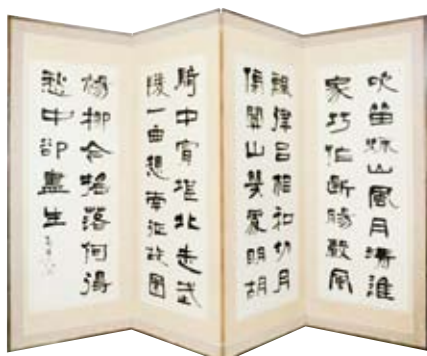 吹笛秋山風月清誰
家巧作斷腸聲風
飄律呂相和切月
傍關山幾處明胡
騎中宵堪北走武
陵一曲想南征故園
楊柳今搖落何得
愁中卻盡生